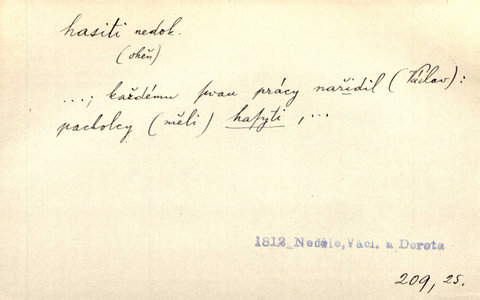 hasiti nedok.
(oheň)
...; každému swau prácy nařídil (Václav):
pacholcy (měli) hasyti, ...
1812 Neděle, Václ. a Dorota
209, 25.